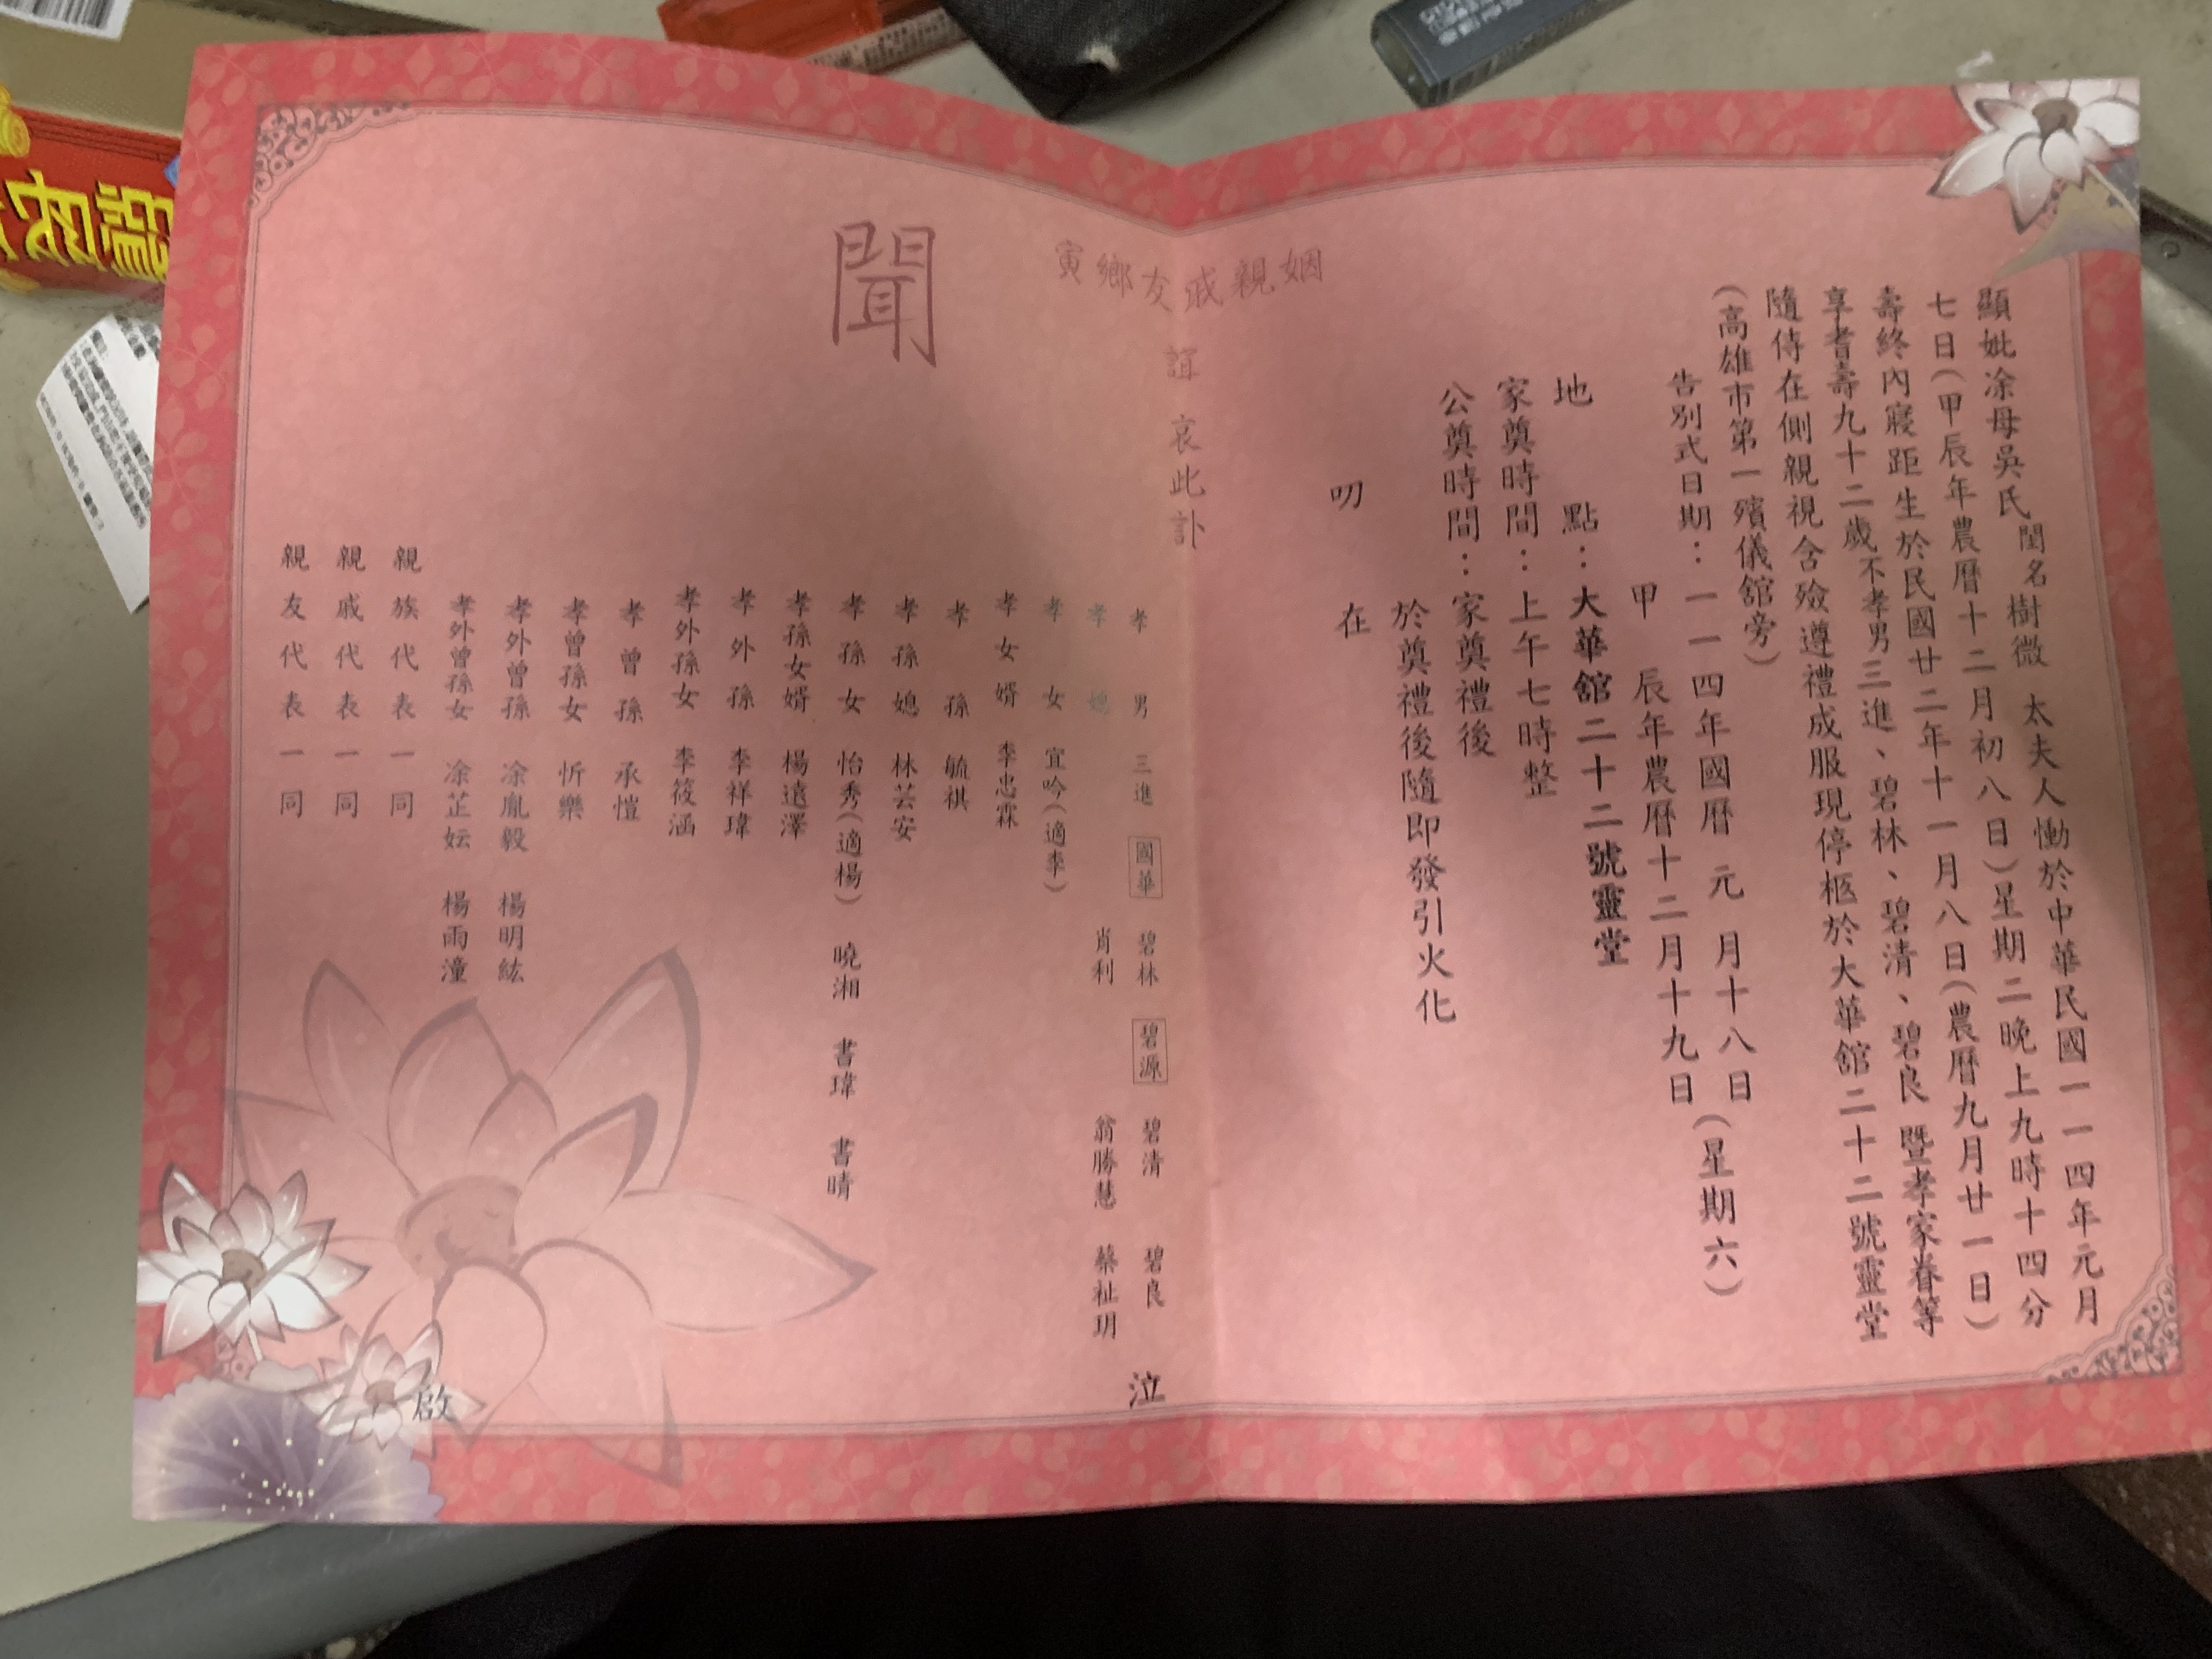 顯妣凃母吳氏閨名樹微 太夫人慟於中華民國一一四年元月
七日(甲辰年農曆十二月初八日)星期二晚上九時十四分
壽終內寢距生於民國廿二年十一月八日(農曆九月廿一日)
享耆壽九十二歲不孝男三進、碧林、碧清、碧良 暨孝家眷等
隨侍在側親視含殮遵禮成服現停柩於大華舘二十二號靈堂
(高雄市第一殯儀舘旁)
告別式日期:一一四年國曆 元 月十八日(星期六)
甲 辰年農曆十二月十九日
地 點:大華舘二十二號靈堂
家奠時間:上午七時整
公奠時間:家奠禮後
於奠禮後隨即發引火化
叨 在
姻親戚友鄉寅
誼 哀此訃
聞
孝 男 三進 國華 碧林 碧源 碧清 碧良 泣
孝 媳 肖利 翁勝慧 蔡祉玥
孝 女 宜吟(適李)
孝女婿 李忠霖
孝 孫 毓祺
孝孫媳 林芸安
孝孫女 怡秀(適楊) 曉湘 書瑋 書晴
孝孫女婿 楊遠澤
孝外孫 李祥瑋
孝外孫女 李筱涵
孝曾孫 承愷
孝曾孫女 忻樂
孝外曾孫 凃胤毅 楊明紘
孝外曾孫女 凃芷妘 楊雨潼
親族代表一同
親戚代表一同
親友代表一同
啟